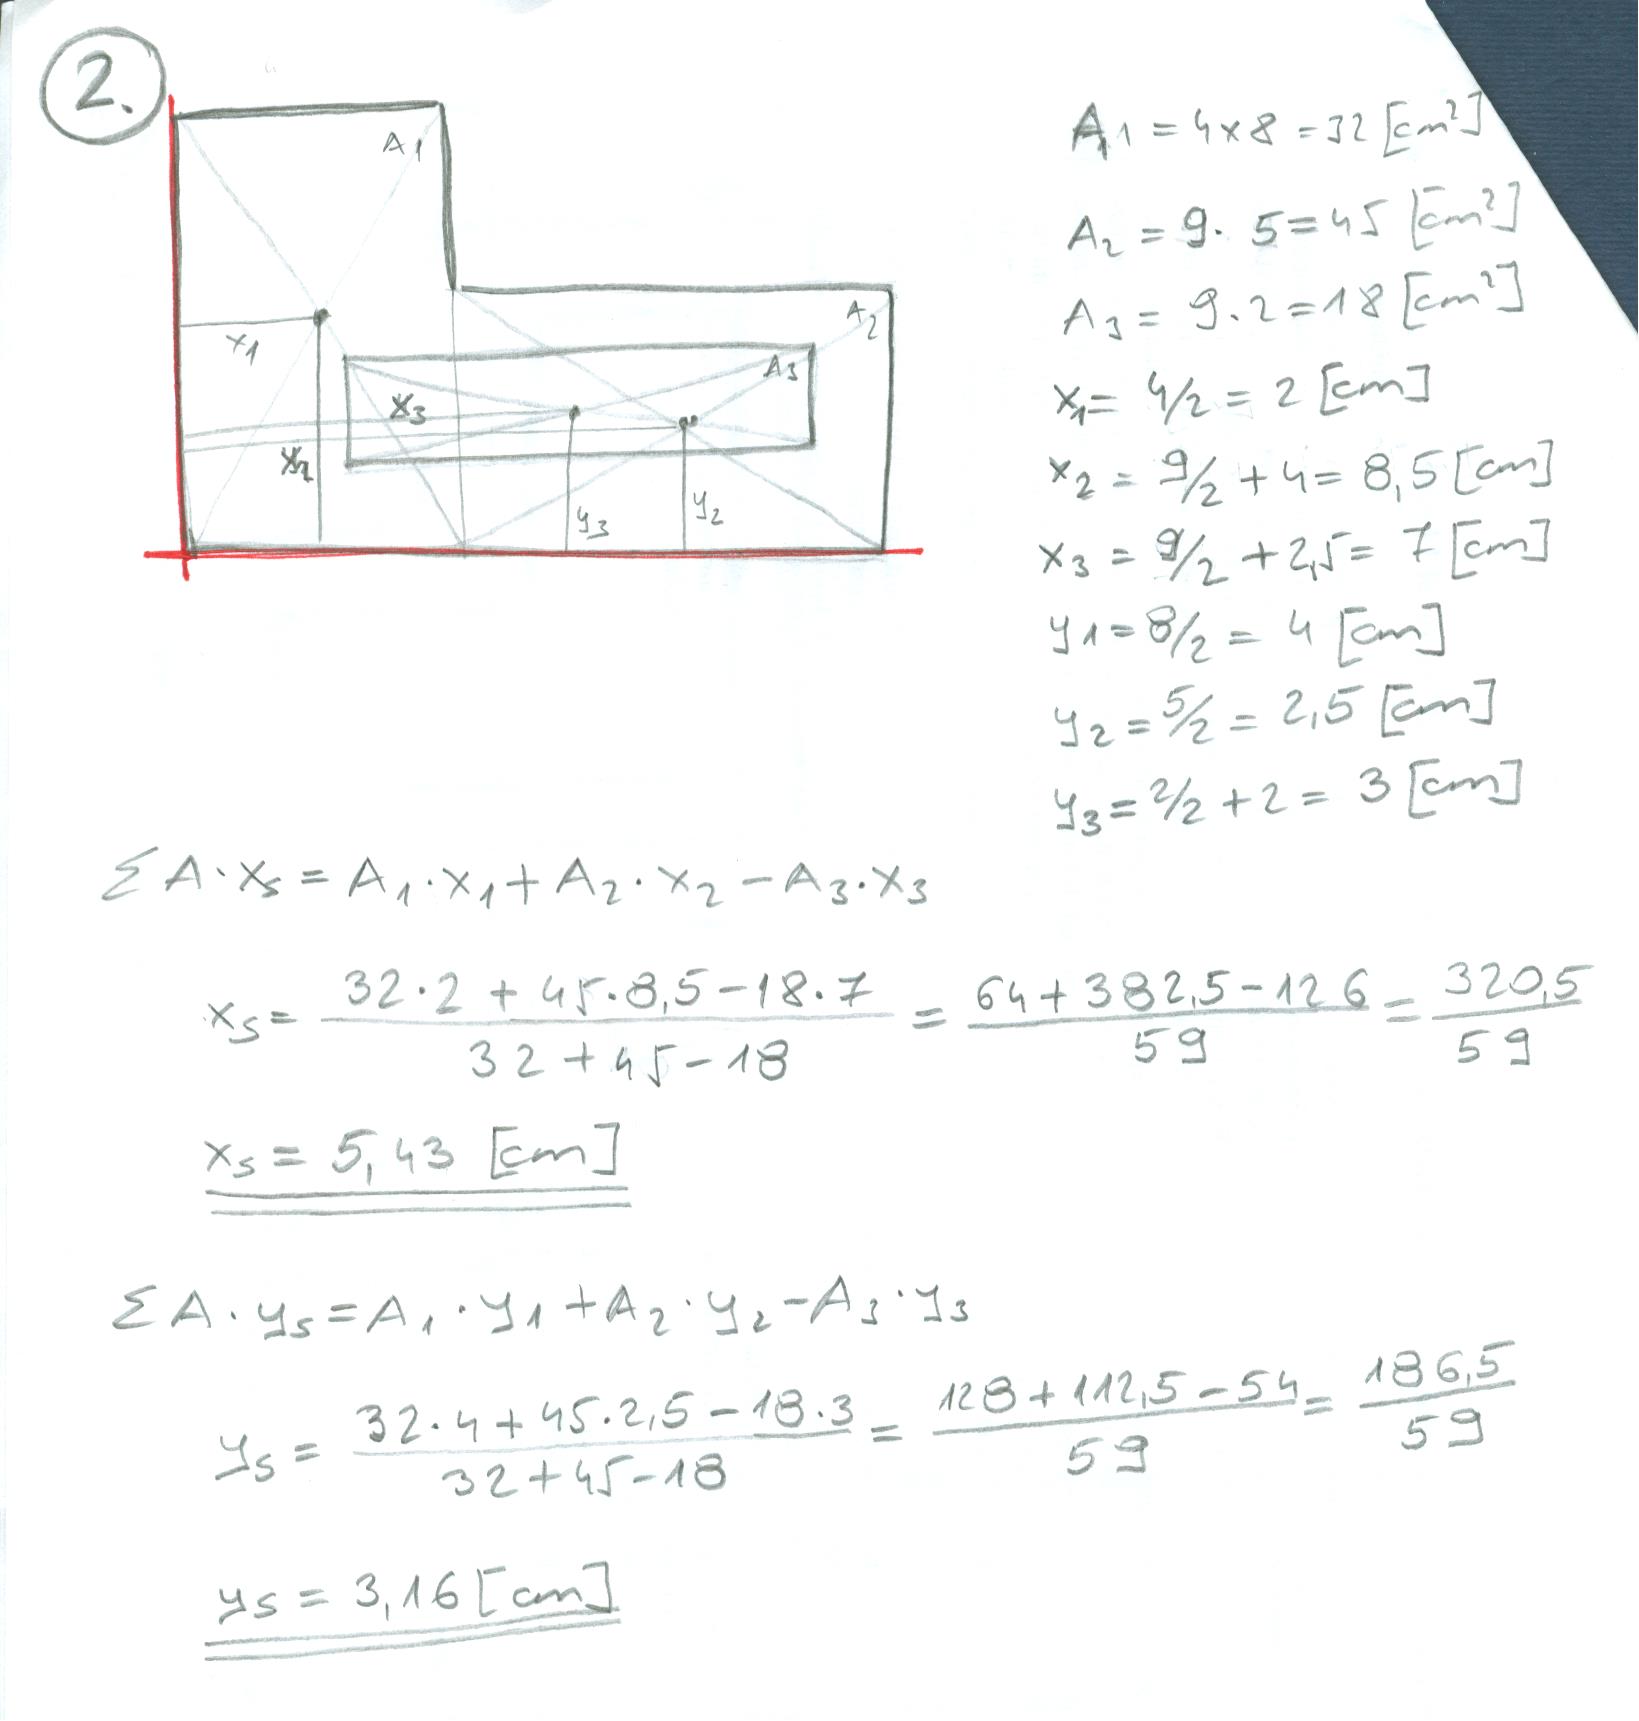 2.
A1
A2
A3
x1
x3
x2
y3
y2
A1 = 4x8 = 32 [cm²]
A2 = 9. 5 = 45 [cm²]
A3 = 9.2 = 18 [cm²]
x1 = 4/2 = 2 [cm]
x2 = 9/2 + 4 = 8,5 [cm]
x3 = 9/2 + 2,5 = 7 [cm]
y1 = 8/2 = 4 [cm]
y2 = 5/2 = 2,5 [cm]
y3 = 2/2 + 2 = 3 [cm]
ΣA·xs = A1·x1 + A2·x2 - A3·x3
xs = (32·2 + 45·8,5 - 18·7)/(32 + 45 - 18) = (64 + 382,5 - 126)/59 = 320,5/59
xs = 5,43 [cm]
ΣA·ys = A1·y1 + A2·y2 - A3·y3
ys = (32·4 + 45·2,5 - 18·3)/(32 + 45 - 18) = (128 + 112,5 - 54)/59 = 186,5/59
ys = 3,16 [cm]